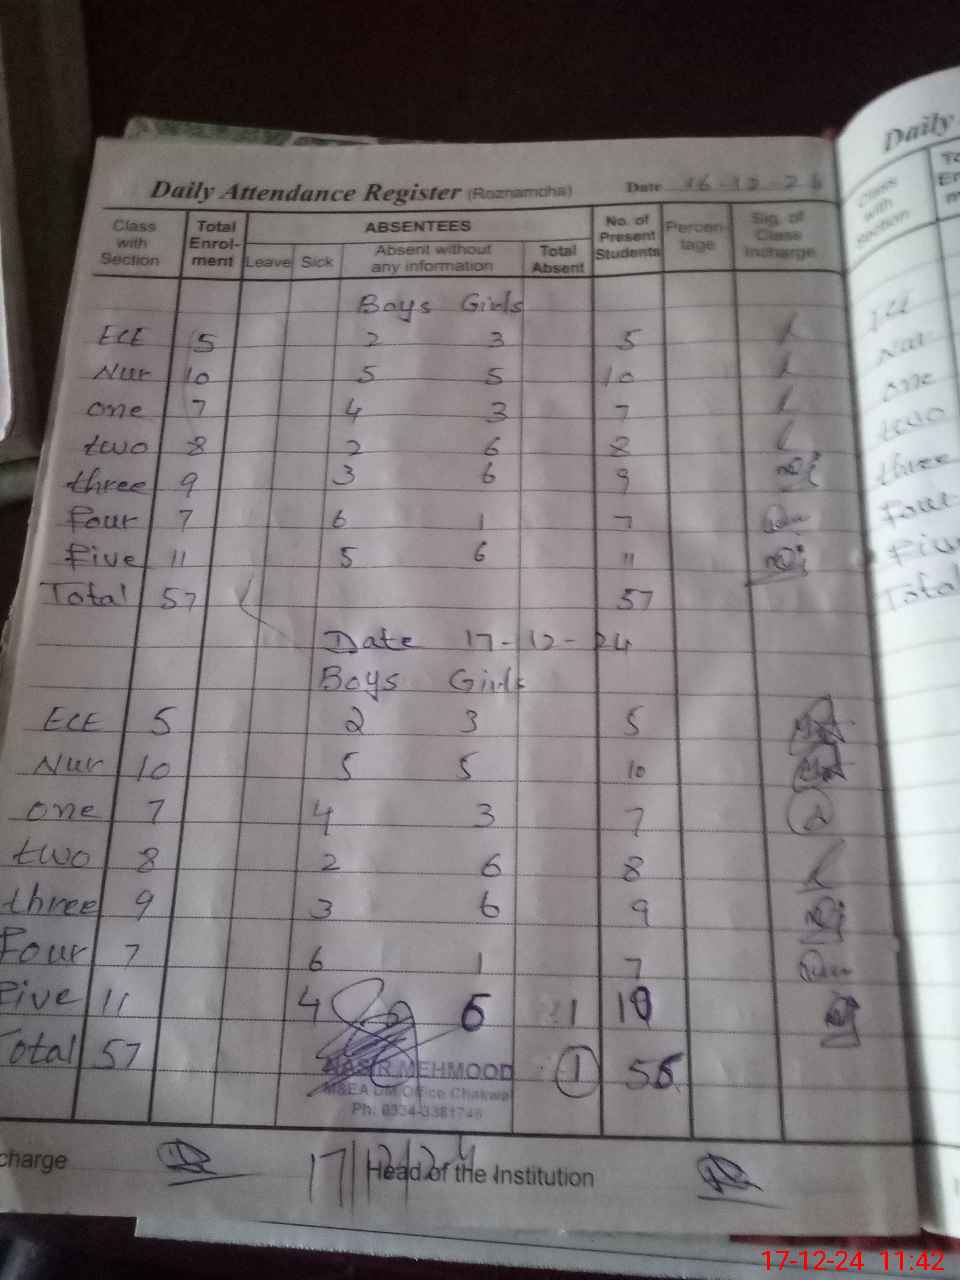 Daily Attendance Register (Roznamcha) Date 16-12-24
Class with Section Total Enrol-ment ABSENTEES No. of Present Students Percen-tage Sig. of Class Incharge
Leave Sick Absent without any information Total Absent
Boys Girls
ECE 5 2 3 5
Nur 10 5 5 10
one 7 4 3 7
two 8 2 6 8
three 9 3 6 9
Four 7 6 1 7
Five 11 5 6 11
Total 57 57
Date 17-12-24
Boys Girls
ECE 5 2 3 5
Nur 10 5 5 10
one 7 4 3 7
two 8 2 6 8
three 9 3 6 9
Four 7 6 1 7
Five 11 4 6 1 10
Total 57 1 56
NASIR MEHMOOD
M&EA DM Office Chakwal
Ph: 0334-3381746
charge Head of the Institution
17/12/24
Daily
Class with Section
ECE
Nur
one
two
three
Four
Five
Total
17-12-24 11:42